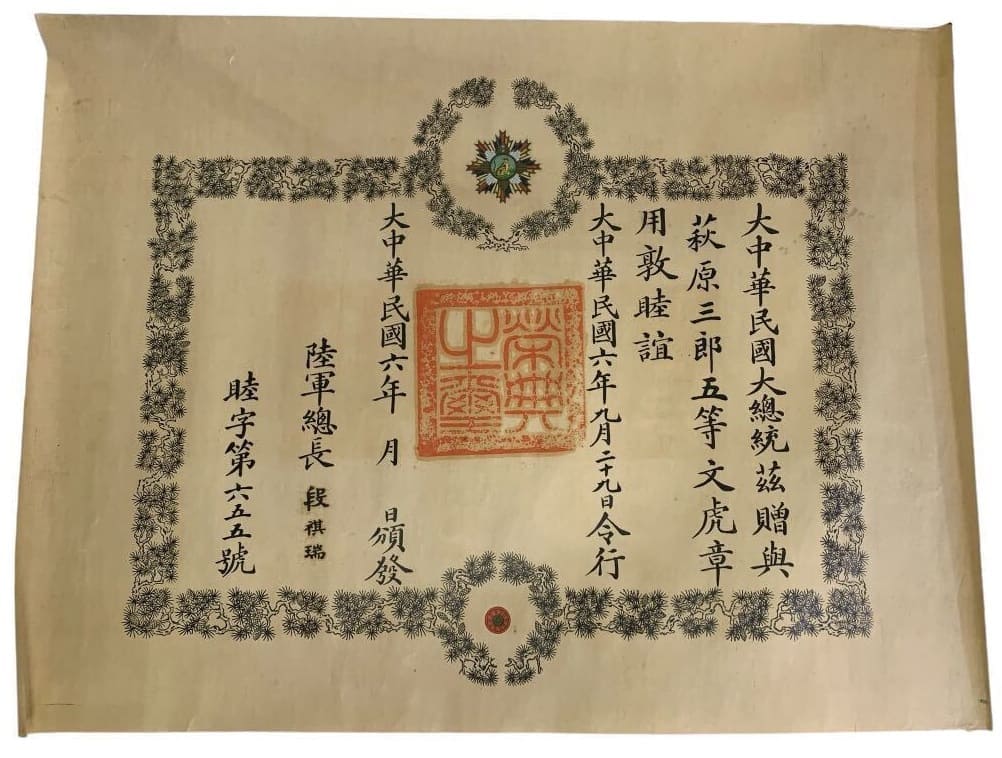 大中華民國大總統茲贈與
萩原三郎五等文虎章
用敦睦誼
大中華民國六年九月二十九日令行
榮典之璽
大中華民國六年 月 日頒發
陸軍總長 段祺瑞
睦字第六五五號